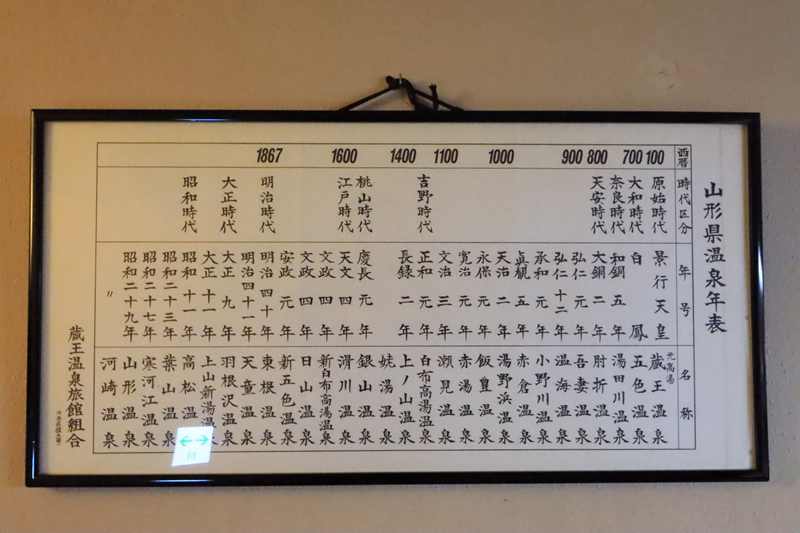 山形県温泉年表
西暦
100
700
800
900
1000
1100
1400
1600
1867
時代区分
原始時代
大和時代
奈良時代
天安時代
吉野時代
桃山時代
江戸時代
明治時代
大正時代
昭和時代
年号
景行天皇
白鳳
和銅五年
大銅二年
弘仁元年
弘仁十二年
承和元年
貞観五年
天治二年
永保元年
寛治元年
文治三年
正和元年
長録二年
慶長元年
天文四年
文政四年
文政四年
安政元年
明治四十年
明治四十一年
大正九年
大正十一年
昭和十一年
昭和二十三年
昭和二十七年
昭和二十九年
〃
名称
元高湯
蔵王温泉
五色温泉
湯田川温泉
肘折温泉
吾妻温泉
温海温泉
小野川温泉
赤倉温泉
湯野浜温泉
飯豊温泉
赤湯温泉
瀬見温泉
白布高湯温泉
上ノ山温泉
姥湯温泉
銀山温泉
滑川温泉
新白布高湯温泉
日山温泉
新五色温泉
東根温泉
天童温泉
羽根沢温泉
上山新湯温泉
高松温泉
葉山温泉
寒河江温泉
山形温泉
河崎温泉
蔵王温泉旅館組合